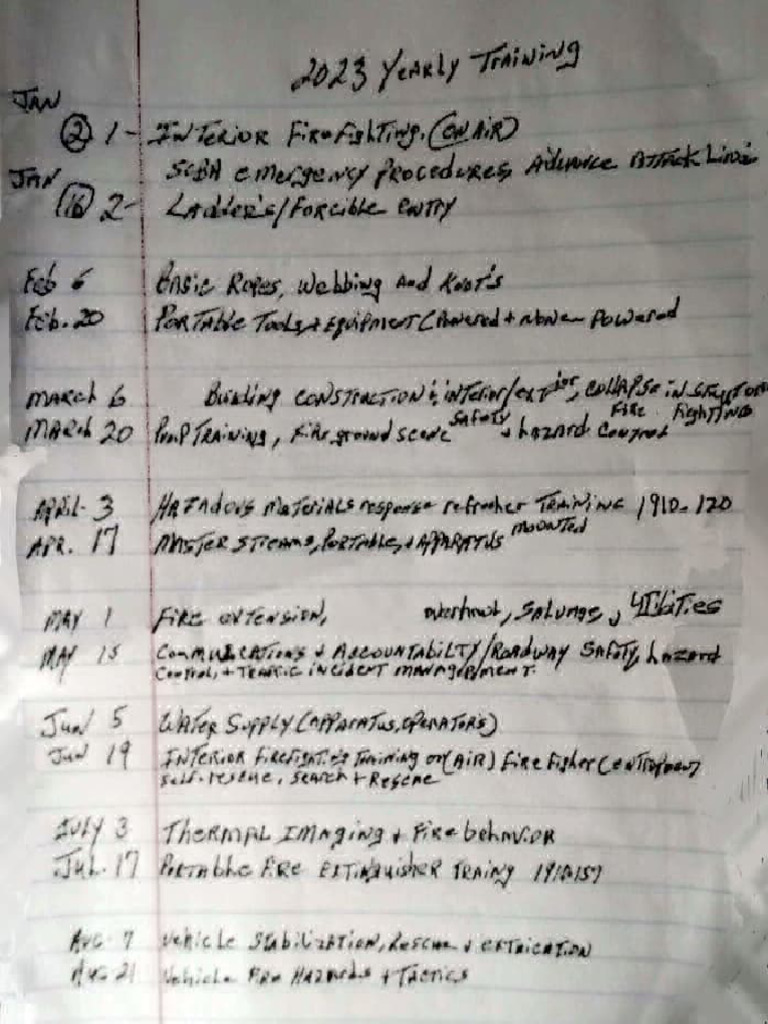 2023 Yearly Training
JAN
② 1 - INTERIOR FireFighting, (ON AIR)
SCBA emergency Procedures, Advance Attack Line
JAN
⑯ 2 - Ladder's/Forcible entry
Feb 6 Basic Ropes, Webbing and Knot's
Feb. 20 Portable Tools + Equipment (Powered + none Powered
MARCH 6 Building Construction interior/exterior, Collapse in structure
Fire Fighting
March 20 Pump Training, Fire ground scene safety + hazard Control
APRIL 3 Hazadous Materials response refresher Training 1910-120
APR. 17 Master Streams, Portable, + Apparatus mounted
MAY 1 Fire extension, overhaul, Salvage,
MAY 15 Communications + Accountability/Roadway Safety, hazard
Control, + Traffic incident management.
Jun 5 Water Supply (Apparatus, operators)
Jun 19 Interior Firefighting Training on (AIR) Fire Fighter (
self-rescue, search + Rescue
July 3 Thermal Imaging + Fire behavior
Jul. 17 Portable Fire Extinguisher Training
Aug 7 Vehicle Stabilization, Rescue + extrication
Aug 21 Vehicle Fire Hazards + Tactics